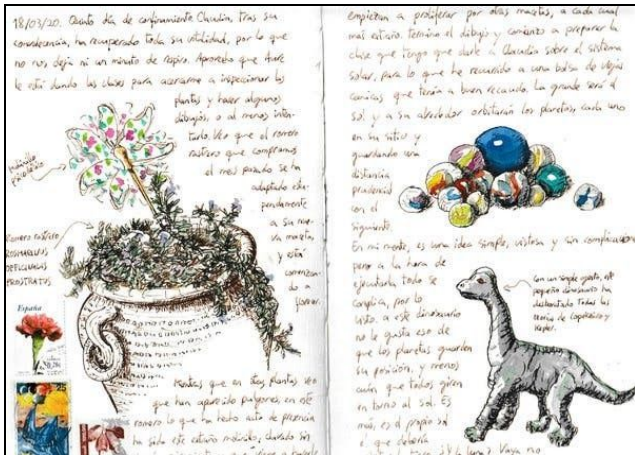 18/03/20. Quinto día de confinamiento. Claudia, tras su
convalecencia, ha recuperado toda su vitalidad, por lo que
no nos deja ni un minuto de respiro. Aprovecho que Aure
le está dando las clases para acercarme a inspeccionar las
plantas y hacer algunos
dibujos, o al menos inten-
tarlo. Veo que el romero
rastrero que compramos
el mes pasado se ha
adaptado estu-
pendamente
a su nue-
va maceta,
y está
comenzan-
do a
florecer.
molinillo
Romero rastrero
ROSMARINUS
OFFICINALIS
PROSTRATUS
España
25
Mientras que en otras plantas veo
que han aparecido pulgones, en este
romero lo que ha hecho acto de presencia
ha sido este extraño molinillo, clavado sin
empiezan a proliferar por otras macetas, a cada cual
más extraño. Termino el dibujo y comienzo a preparar la
clase que tengo que darle a Claudia sobre el sistema
solar, para lo que he recurrido a una bolsa de viejas
canicas que tenía a buen recaudo. La grande será el
sol y a su alrededor orbitarán los planetas, cada uno
en su sitio y
guardando una
distancia
prudencial
con el
siguiente.
En mi mente, es una idea simple, vistosa y sin complicaciones
pero a la hora de
ejecutarla todo se
complica, por lo
visto, a ese dinosaurio
no le gusta eso de
que los planetas guarden
su posición, y menos
aún que todos giren
en torno al sol. Es
más, es el propio sol
el que debería
Vaya, no
con un simple gesto, este
pequeño dinosaurio ha
desmontado todas las
teorías de Copérnico y
Kepler.